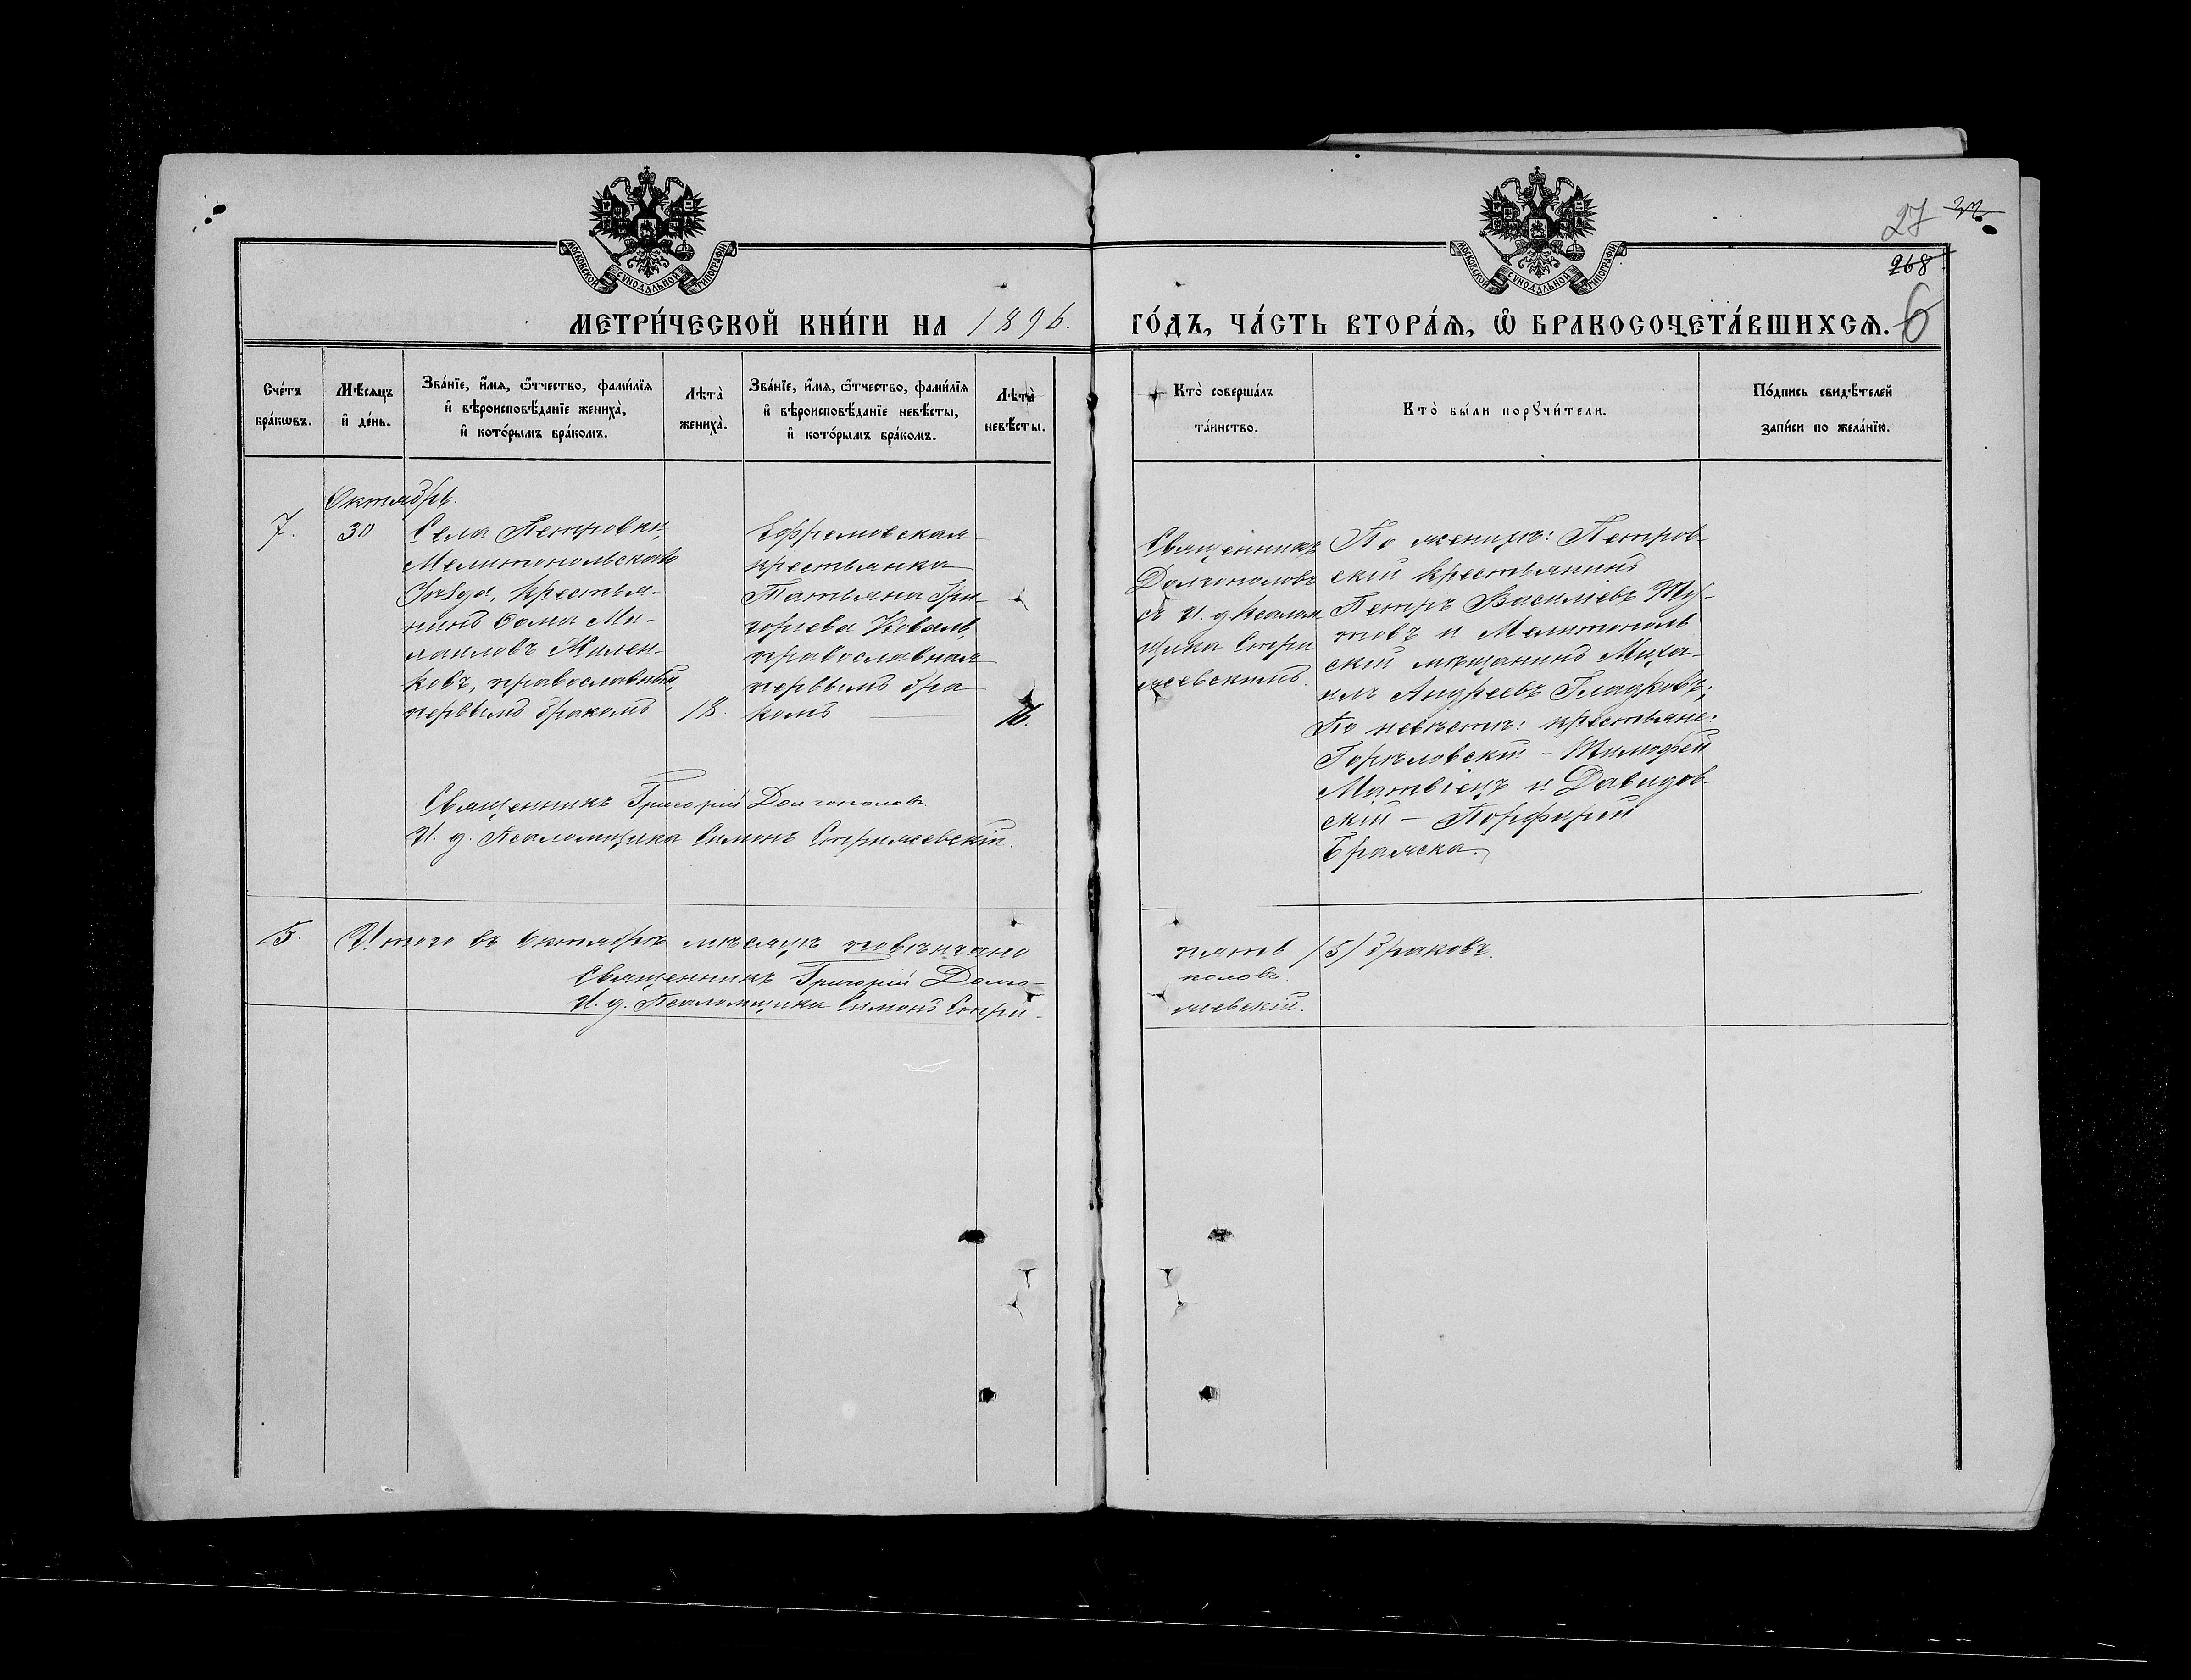 27
268
6
МОСКОВСКОЙ СѴНОДАЛЬНОЙ ТИПОГРАФІИ
МОСКОВСКОЙ СѴНОДАЛЬНОЙ ТИПОГРАФІИ
МЕТРИ́ЧЕСКОЙ КНИ́ГИ НА 1896.
ГО́ДЪ, ЧА́СТЬ ВТОРА́Я, Ѽ БРАКОСОЧЕТА́ВШИХСЯ.
Сче́тъ
бра́кѡвъ.
Мѣ́сяцъ
и҆ де́нь.
Зва́нїе, и҆́мя, ѻ҆́тчество, фами́лїя
и҆ вѣроисповѣ́данїе жениха̀,
и҆ кото́рымъ бра́комъ.
Лѣта̀
жениха̀.
Зва́нїе, и҆́мя, ѻ҆́тчество, фами́лїя
и҆ вѣроисповѣ́данїе невѣ́сты,
и҆ кото́рымъ бра́комъ.
Лѣта̀
невѣ́сты.
Кто̀ соверша́лъ
та́инство.
Кто̀ бы́ли порꙋчи́тели.
По́дпись свидѣ́телей
за́писи по жела́нїю.
Октябрь.
7.
30
Села Петровки,
Мелитопольскаго
Уѣзда, крестья-
нинъ Сама Ми-
хаиловъ Жилен-
ковъ, православный,
первымъ бракомъ
18.
Ефремовская
крестьянка
Татьяна Гри-
горьева Коваль,
православная
первымъ бра
комъ
16.
Священникъ
Долгополовъ
съ И. д. Псалом
щика Стри
жевскимъ.
По женихѣ: Петров-
скій крестьянинъ
Петръ Василіевъ
и Мелитополь
скій мѣщанинъ Миха-
илъ Андреевъ Гладковъ;
По невѣстѣ: крестьяне:
Горѣловскій - Тимофей
Матвіецъ и Давидов-
скій - Порфирій
Бражска.
Священникъ Григорій Долгополовъ.
И. д. Псаломщика Симонъ Стрижевскій.
5.
Итого въ Октябрѣ мѣсяцѣ повѣнчано
пять /5/ браковъ.
Священникъ Григорій Долго-
половъ.
И. д. Псаломщика Симонъ Стри-
жевскій.